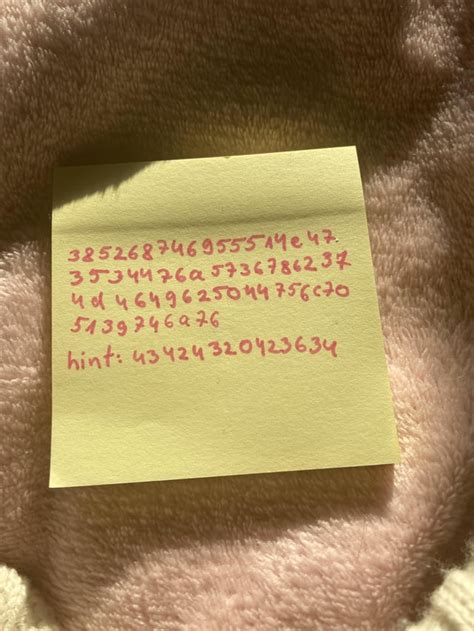 385268746955514e47
3534476a5736786237
4d4649625044756c70
5139746a76
hint: 43424320423634